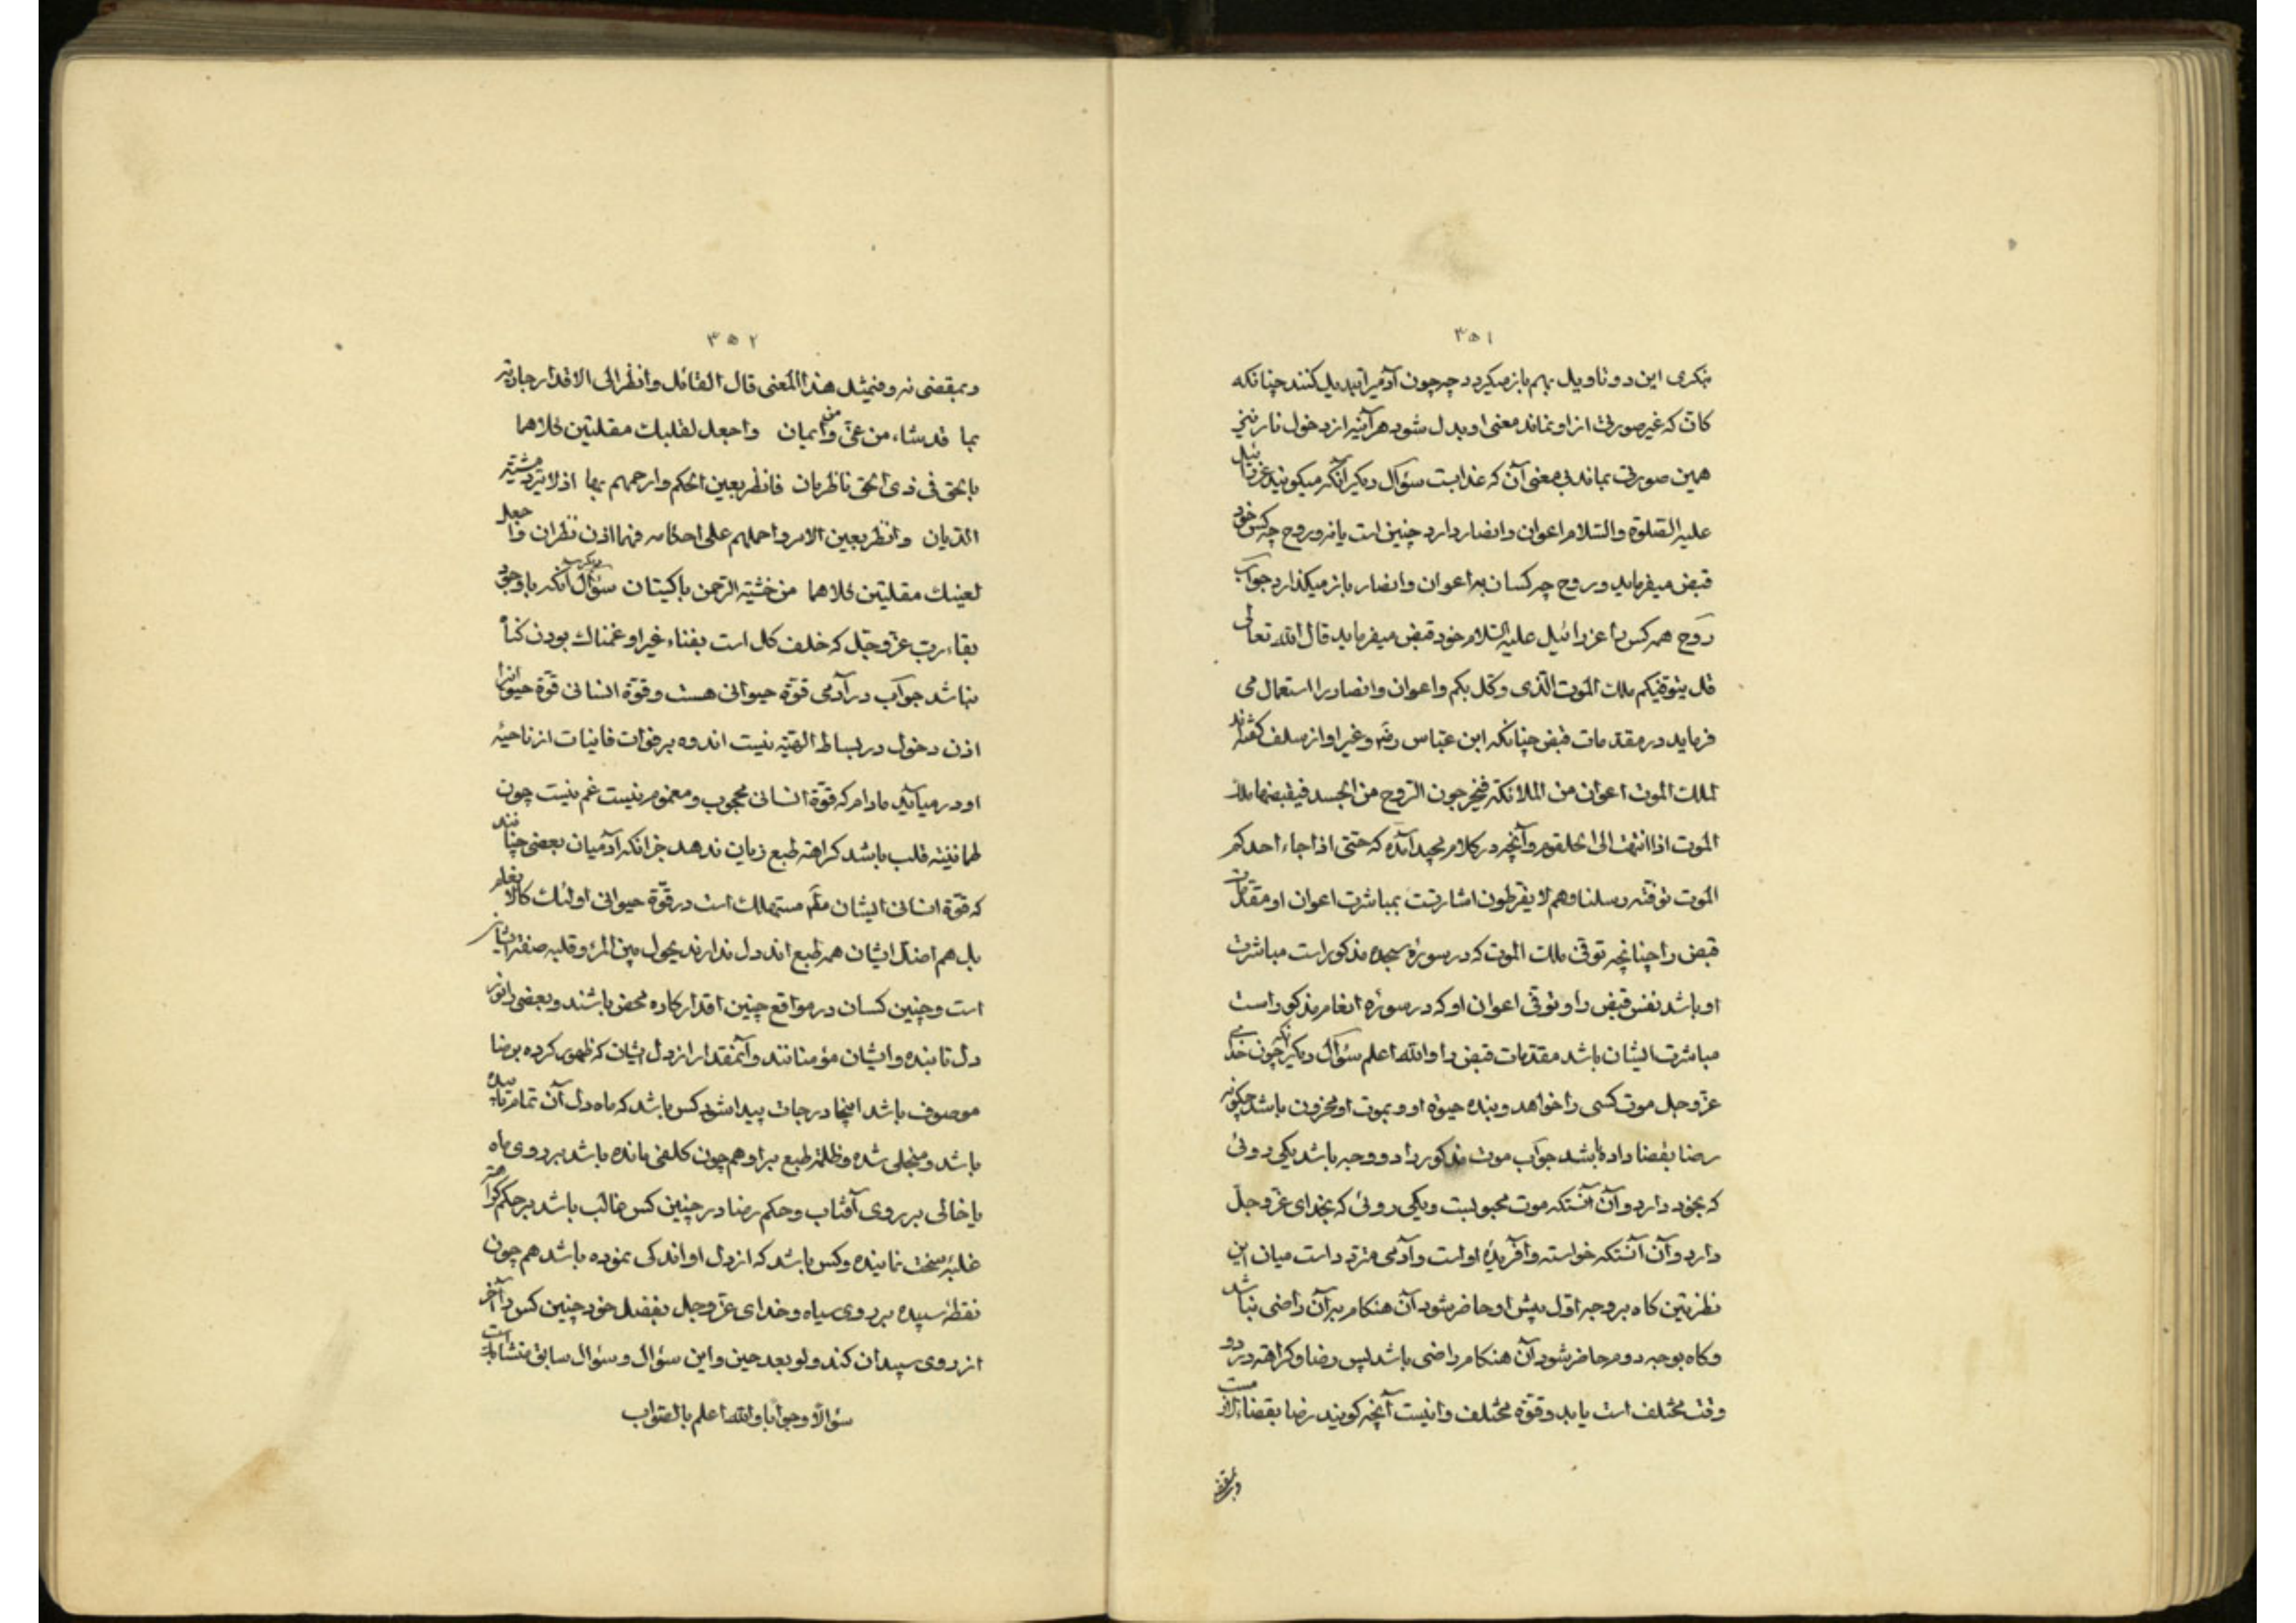 ۳۵۱
بنکری این دو تاویل بهم بازمیکردد چه چون آدمیرا تبدیل کنند چنانکه
کانّ که غیر صورتی از او نماند معنی او بدل شود هرآئینه از دخول نار نیز
همین صورتی بماند بی معنی آن که عذابست سؤال دیکر آنکه میکویند عزرائیل
علیه الصلوة والسلام اعوان وانصار دارد چنین است یا نه وروح چه کس خود
قبض میفرماید وروح چه کسان به اعوان وانصار بازمیکذارد جواب
روح همه کس را عزرائیل علیه السلام خود قبض میفرماید قال الله تعالی
قل یتوفیکم ملک الموت الّذی وکّل بکم واعوان وانصار را استعمال می
فرماید در مقدمات قبض چنانکه ابن عبّاس رضه وغیر او از سلف کفته‌اند
لملک الموت اعوان من الملائکة فیخرجون الروح من الجسد فیقبضها ملک
الموت اذا انتهت الی الحلقوم وآنچه در کلام مجید آمده که حتّی اذا جاء احدکم
الموت توفته رسلنا وهم لا یفرطون اشارتست بمباشرت اعوان او مقدّمات
قبض را چنانچه توفی ملک الموت که در سورۀ سجده مذکور است مباشرت
او باشد نفس قبض را وتوفی اعوان او که در سورۀ انعام مذکور است
مباشرت ایشان باشد مقدّمات قبض را والله اعلم سؤال دیکر آنکه چون خدای
عزّ وجل موت کسی را خواهد وبنده حیوة او وبموت او محزون باشد چکونه
رضا بقضا داده باشد جواب موت مذکور را دو وجه باشد یکی روئی
که بخود دارد وآن آنستکه موت محبوبست ویکی روئی که بخدای عزّ وجلّ
دارد وآن آنستکه خواسته وآفریدۀ اوست وآدمی متردّد است میان این
نظرتین کاه بر وجه اوّل پیش او حاضر شود آن هنکام برآن راضی نباشد
وکاه بوجه دوم حاضر شود آن هنکام راضی باشد پس رضا وکراهته در دو
وقت مختلف است یا بدو قوّه مختلف واینست آنچه کویند رضا بقضاء لازمست
۳۵۲
وبمقضی نه وفیمثل هذا المعنی قال القائل وانظر الی الاقدار جاریة
بما قد شاء من غیّ ومن ایمان واجعل لقلبک مقلتین کلاهما
بالحق فی ذی الخق ناظرتان فانظر بعین الحکم وارحمهم بها اذ لا تردّ مشیّة
الدّیان وانظر بعین الامر واحملهم علی احکامه فهما اذن نظران واجعل
لعینک مقلتین کلاهما من خشیة الرحمن باکیتان سؤال دیکر آنکه با وجود
بقاء ربّ عزّ وجلّ که خلف کل است بفناء غیر او غمناک بودن کناه
نباشد جواب در آدمی قوّة حیوانی هست وقوّة انسانی قوّة حیوانیرا
اذن دخول در بساط الهیّه نیست اندوه بر فوات فانیات از ناحیۀ
او درمیآید مادام که قوّة انسانی محجوب ومغموم نیست غم نیست چون
طمانینه قلب باشد کراهة طبع زیان ندهد جز آنکه آدمیان بعضی چنانند
که قوّة انسانی ایشان مستهلک است در قوّة حیوانی اولئک کالانعام
بل هم اضل ایشان همه طبع اند دل ندارند یحول بین المرء وقلبه صفة ایشان
است وچنین کسان در مواقع چنین اقدار کاره محض باشند وبعضی را نور
دل تابنده وایشان مؤمنانند وآنمقدار از دل ایشان که ظهور کرده برضا
موصوف باشد اینجا درجات پیدا شود کس باشد که ماه دل آن تمام تابنده
باشد ومنجلی شده وظلمة طبع بر او همچون کلفی مانده باشد بر روی ماه
یا خالی بر روی آفتاب وحکم رضا در چنین کس غالب باشد بر حکم کراهته
غلبۀ سخت نماینده وکس باشد که از دل او اندکی نموده باشد همچون
نقطۀ سپیده بر روی سیاه وخدای عزّ وجل بفضل خود چنین کس را آخر
از روی سپیدان کند ولو بعد حین واین سؤال وسؤال سابق متشابه است
سؤالا وجوابا والله اعلم بالصواب